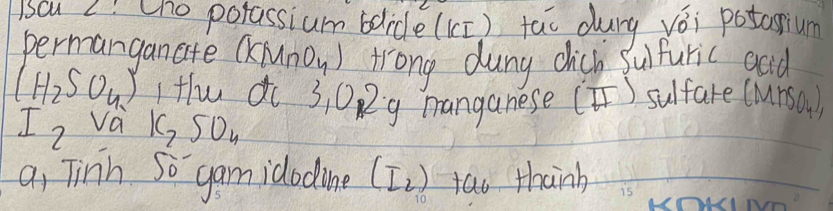 Bài 2: Cho potassium iodide (KI) tác dụng với potasium
permanganate (KMnO4) trong dung dịch sulfuric acid
(H2SO4), thu đc 3,02g manganese (II) sulfate (MnSO4),
I2 và K2SO4
a, Tính số gam idodine (I2) tạo thành
5 10 15
KOKUYO